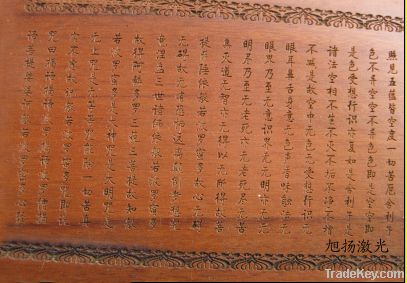 照見五蘊皆空度一切苦厄舍利子
色不异空空不异色色即是空空即
是色受想行識亦复如是舍利子是
諸法空相不生不灭不垢不净不增
不减是故空中无色无受想行識无
眼耳鼻舌身意无色声香味触法无
眼界乃至无意識界无无明亦无无
明尽乃至无老死亦无老死尽无苦
集灭道无智亦无得以无所得故菩
提萨埵依般若波罗蜜多故心无
礙故无有恐怖远离颠倒梦想
究竟涅槃三世諸佛依般若波罗蜜多
故得阿耨多罗三藐三菩提故知般
若波罗蜜多是大神咒是大明咒是
无上咒是无等等咒能除一切苦真
实不虚故说般若波罗蜜多咒即说
咒曰揭諦揭諦波罗揭諦波罗僧揭
諦菩提萨婆诃般若波罗蜜多心
旭扬激光
TradeKey.com
https://www.TradeKey.com